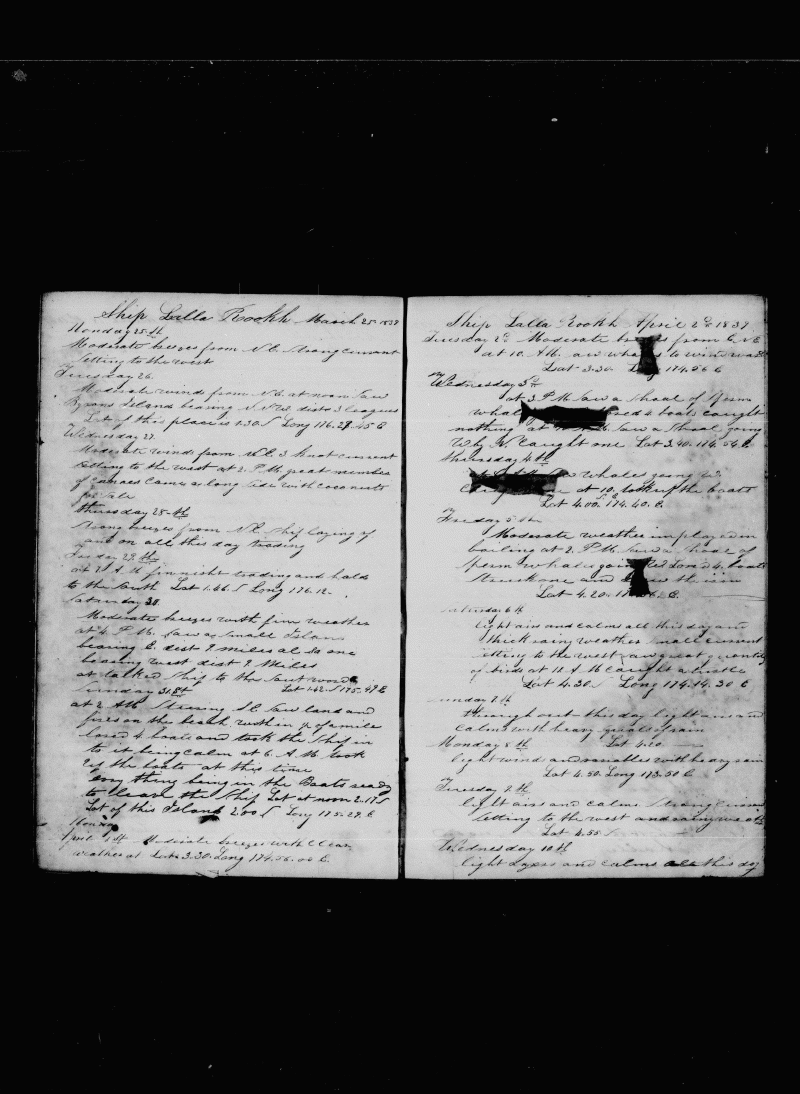 Ship Lalla Rookh March 25 1839
Monday 25th
Moderate breezes from N E Strong current
setting to the west
Tuesday 26.
Moderate winds from N E. at noon Saw
Byrons Island bearing N N W. dist 3 leagues
Lat of this place is 1.30 S Long 176.29.45 E
Wednesday 27.
Moderate winds from N E 3 knot current
setting to the west at 2. P.M. great number
of canoes came along side with cocoanuts
for Sale
Thursday 28th
Strong breezes from N E Ship laying of
and on all this day trading
Friday 29.th
at 7 A M finnished trading and halds
to the South Lat 1.46 S Long 176.12.
Saturday 30.
Moderate breezes with fine weather
at 4. P.M. Saw a Small Island
bearing E. dist 9 miles also one
bearing west dist 9 Miles
at tacked Ship to the Sout word
Sunday 31st Lat 1.42 S 175.49 E
at 2 A M Steering S E Saw land and
fires on the beach within ½ of a mile
lowd 4 boats and took the Ship in
to it being calm at 6. A. M. took
up the boats at this time
Every thing being in the Boats ready
to leave the Ship Lat at noon 2.17 S
Lat of this Island 2.00 S Long 175.29. E
Monday
April 1st Moderate breezes with Clear
weather at Lat 3.30. Long 174.56.00 E.
Ship Lalla Rookh April 2d 1839
Tuesday 2d Moderate from E N E
at 10. A M. Saw to wind ward
Lat 3.30. 174.56 E
Wednesday 3d
at 3 P M Saw a Shoal of Sperm
4 boats caught
nothing at Saw a Shoal going
W by N Caught one Lat 3.40. 174.54 E.
Thursday 4th
whales going W.
At 10. took up the boats
Lat 4.00 S 174.40. E.
Friday 5th
Moderate weather imployed in
boiling at 2. P M. Saw a Shoal of
Sperm whales 4 boats
Struck one and
Lat 4.20. E.
Saturday 6th
light airs and calms all this day and
thick rainy weather Small current
setting to the west Saw great quantity
of birds at 12 A M Caught a turtle
Lat 4.30. S Long 174.14.30 E
Sunday 7th
through out this day light airs and
calms with heavy squals of rain
Monday 8th Lat 4.20
light winds and variables with heavy rain
Lat 4.50. Long 173.50 E
Tuesday 9th
light airs and calms Strong Current
setting to the west and rainy weather
Lat 4.55 S
Wednesday 10th
light and calms all this day